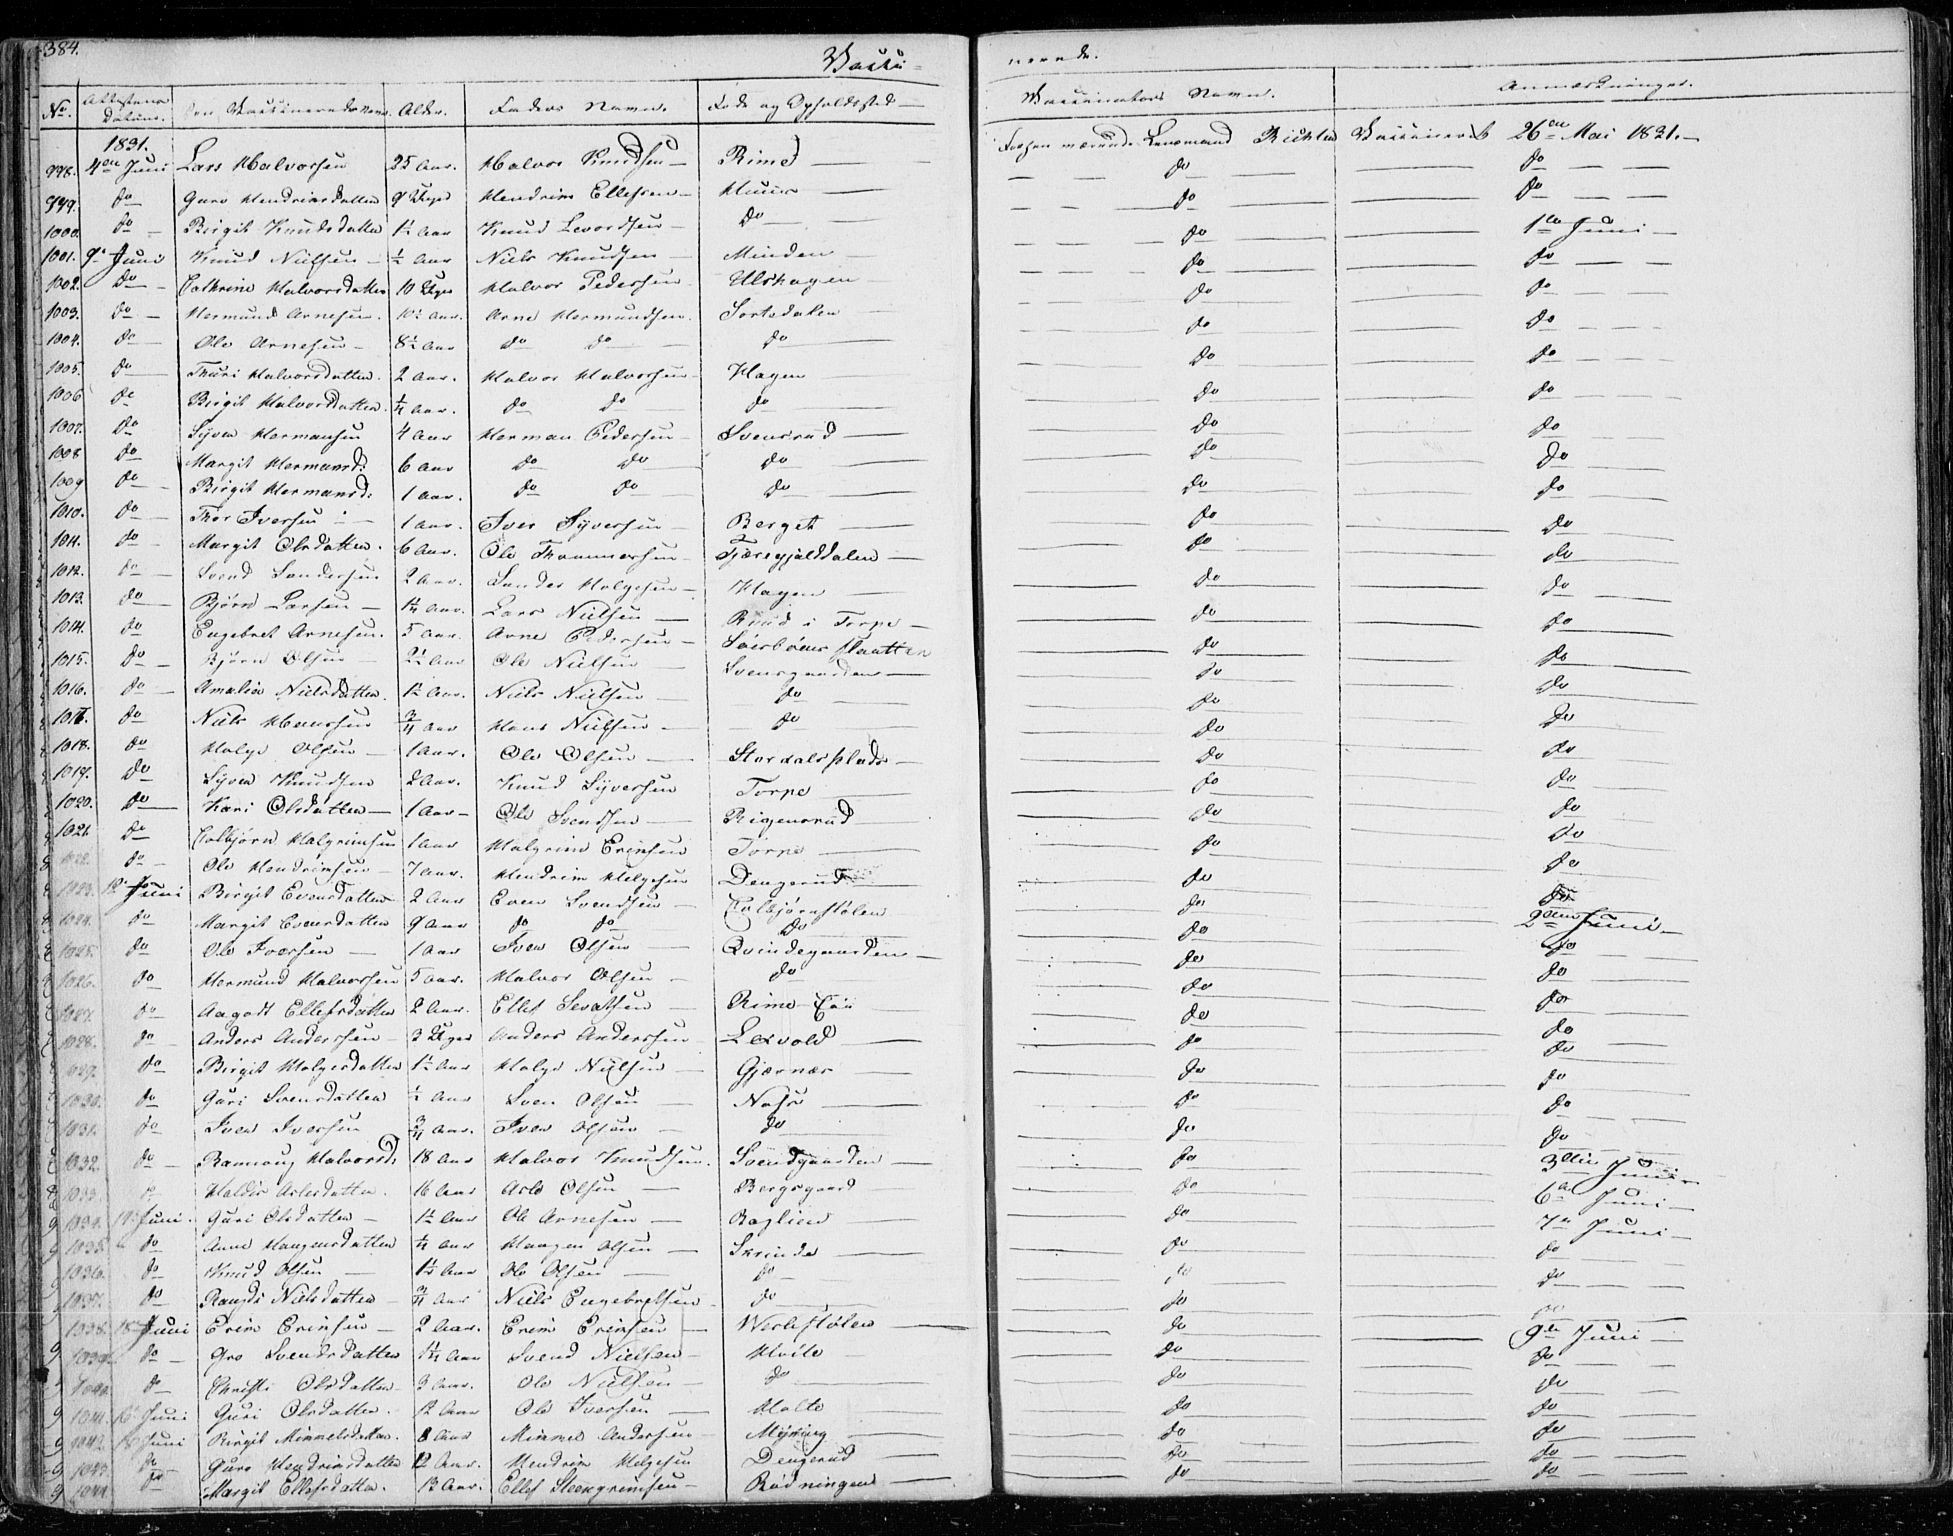 384.
Vacci-
nerede.
No. Attestens Datum. Den Vaccineredes Navn. Alder. Faders Navn. Føde og Opholdssted Vaccinateurs Navn. Anmærkninger.
1831.
998. 4de Juni Lars Halvorsen 25 Aar. Halvor Knudsen Rime Lensmand Richter Vaccineret 26de Mai 1831.
999. do Guro Hendriksdatter 9 Uger Hendrik Ellefsen Huus do do
1000. do Birgit Knudsdatter 1½ Aar Knud Levordsen do do do
1001. 9de Juni Knud Nielsen ½ Aar Niels Knudsen Minden do 1ste Juni
1002. do Cathrine Halvorsdatter 10 Uger Halvor Pedersen Ulshagen do do
1003. do Hermund Arnesen. 10½ Aar. Arne Hermundsen. Sortedalen do do
1004. do Ole Arnesen 8½ Aar do do do do do
1005. do Thuri Halvorsdatter. 2 Aar. Halvor Halvorsen Hagen do do
1006 do Birgit Halvorsdatter ¼ Aar. do do do do do
1007. do Syver Hermansen 4 Aar Herman Pedersen Svensrud do do
1008 do Margit Hermansd: 6 Aar do do do do do
1009 do Birgit Hermansd: 1 Aar. do do do do do
1010. do Thor Iversen 1 Aar. Iver Syversen Berget do do
1011. do Margit Olsdatter. 6 Aar. Ole Thommesen Tjæregjelddalen do do
1012. do Svend Sandersen 2 Aar. Sander Helgesen Hagen do do
1013. do Bjørn Larsen 1¼ Aar. Lars Nielsen Ruud i Torpe do do
1014. do Engebret Arnesen. 5 Aar. Arne Pedersen do do
1015. do Bjørn Olsen 2½ Aar Ole Nielsen Svensgaarden do do
1016. do Amalia Nielsdatter 1½ Aar. Niels Nielsen do do do
1017. do Niels Hansen ¾ Aar Hans Nielsen do do do
1018. do Helge Olsen 1 Aar. Ole Olsen Stordalsplads do do
1019. do Syver Knudsen 2 Aar. Knud Syversen Torpe do do
1020. do Kari Olsdatter 1 Aar Ole Svendsen Rigensrud do do
1021. do Colbjørn Halgrimsen 1 Aar Halgrim Eriksen Torpe do do
1022. do Ole Hendriksen 7 Aar. Hendrik Helgesen Dengerud do do
1023. 12 Juni Birgit Evensdatter 2 Aar Even Svendsen Colbjørnstølen do do
1024. do Margit Evensdatter 9 Aar do do do do 2den Juni
1025. do Ole Iversen 1 Aar Iver Olsen Qvindegaarden do do
1026. do Hermund Halvorsen 5 Aar. Halvor Olsen do do do
1027. do Aagodt Ellefsdatter 2 Aar. Ellef Sevatsen Rime-Eie do do
1028. do Anders Andersen 3 Uger Anders Andersen Lexvold do do
1029. do Birgit Helgesdatter 1½ Aar Helge Nielsen Gjærnes do do
1030. do Guri Svensdatter ½ Aar Sven Olsen do do
1031. do Iver Iversen ¾ Aar. Iver Olsen do do do
1032. do Rannoug Halvorsd: 18 Aar Halvor Knudsen. Svendgaarden do 3die Juni
1033. do Heldis Aslesdatter. 16 Aar Asle Olsen Bergsgaard do 6te Juni
1034. 14 Juni. Guri Olsdatter 1½ Aar Ole Arnesen do 7de Juni
1035. do Anne Haagensdatter ¼ Aar Haagen Olsen Skrinde do do
1036. do Knud Olsen 1½ Aar Ole Olsen do do do
1037. do Rangdi Nielsdatter ¾ Aar Niels Engebretsen do do do
1038. 15 Juni Erik Eriksen 2 Aar. Erik Eriksen Weslestølen do 9de Juni
1039. do Gro Svendsdatter 1¼ Aar Svend Nielsen do do
1040. do Christi Olsdatter 3 Aar. Ole Nielsen do do do
1041. 16 Juni Guri Olsdatter. 12 Aar Ole Iversen Holto do do
1042. 18 Juni Birgit Himmelsdatter. 8 Aar Himmel Andersen Myking do do
1043. do Guro Hendriksdatter 12 Aar. Hendrik Helgesen Dengerud do do
1044. do Margit Ellefsdatter. 13 Aar. Ellef Steengrimsen Rødningen do do